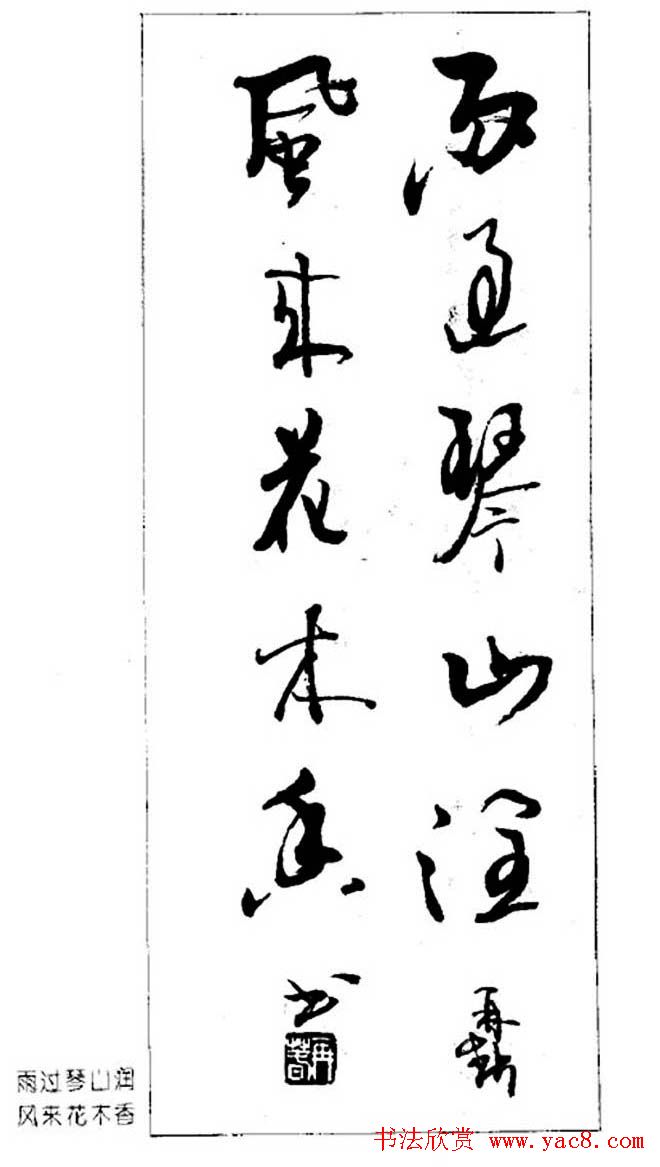 雨過琴山潤 再
風来花木香
书
雨过琴山润
风来花木香
书法欣赏 www.yac8.com